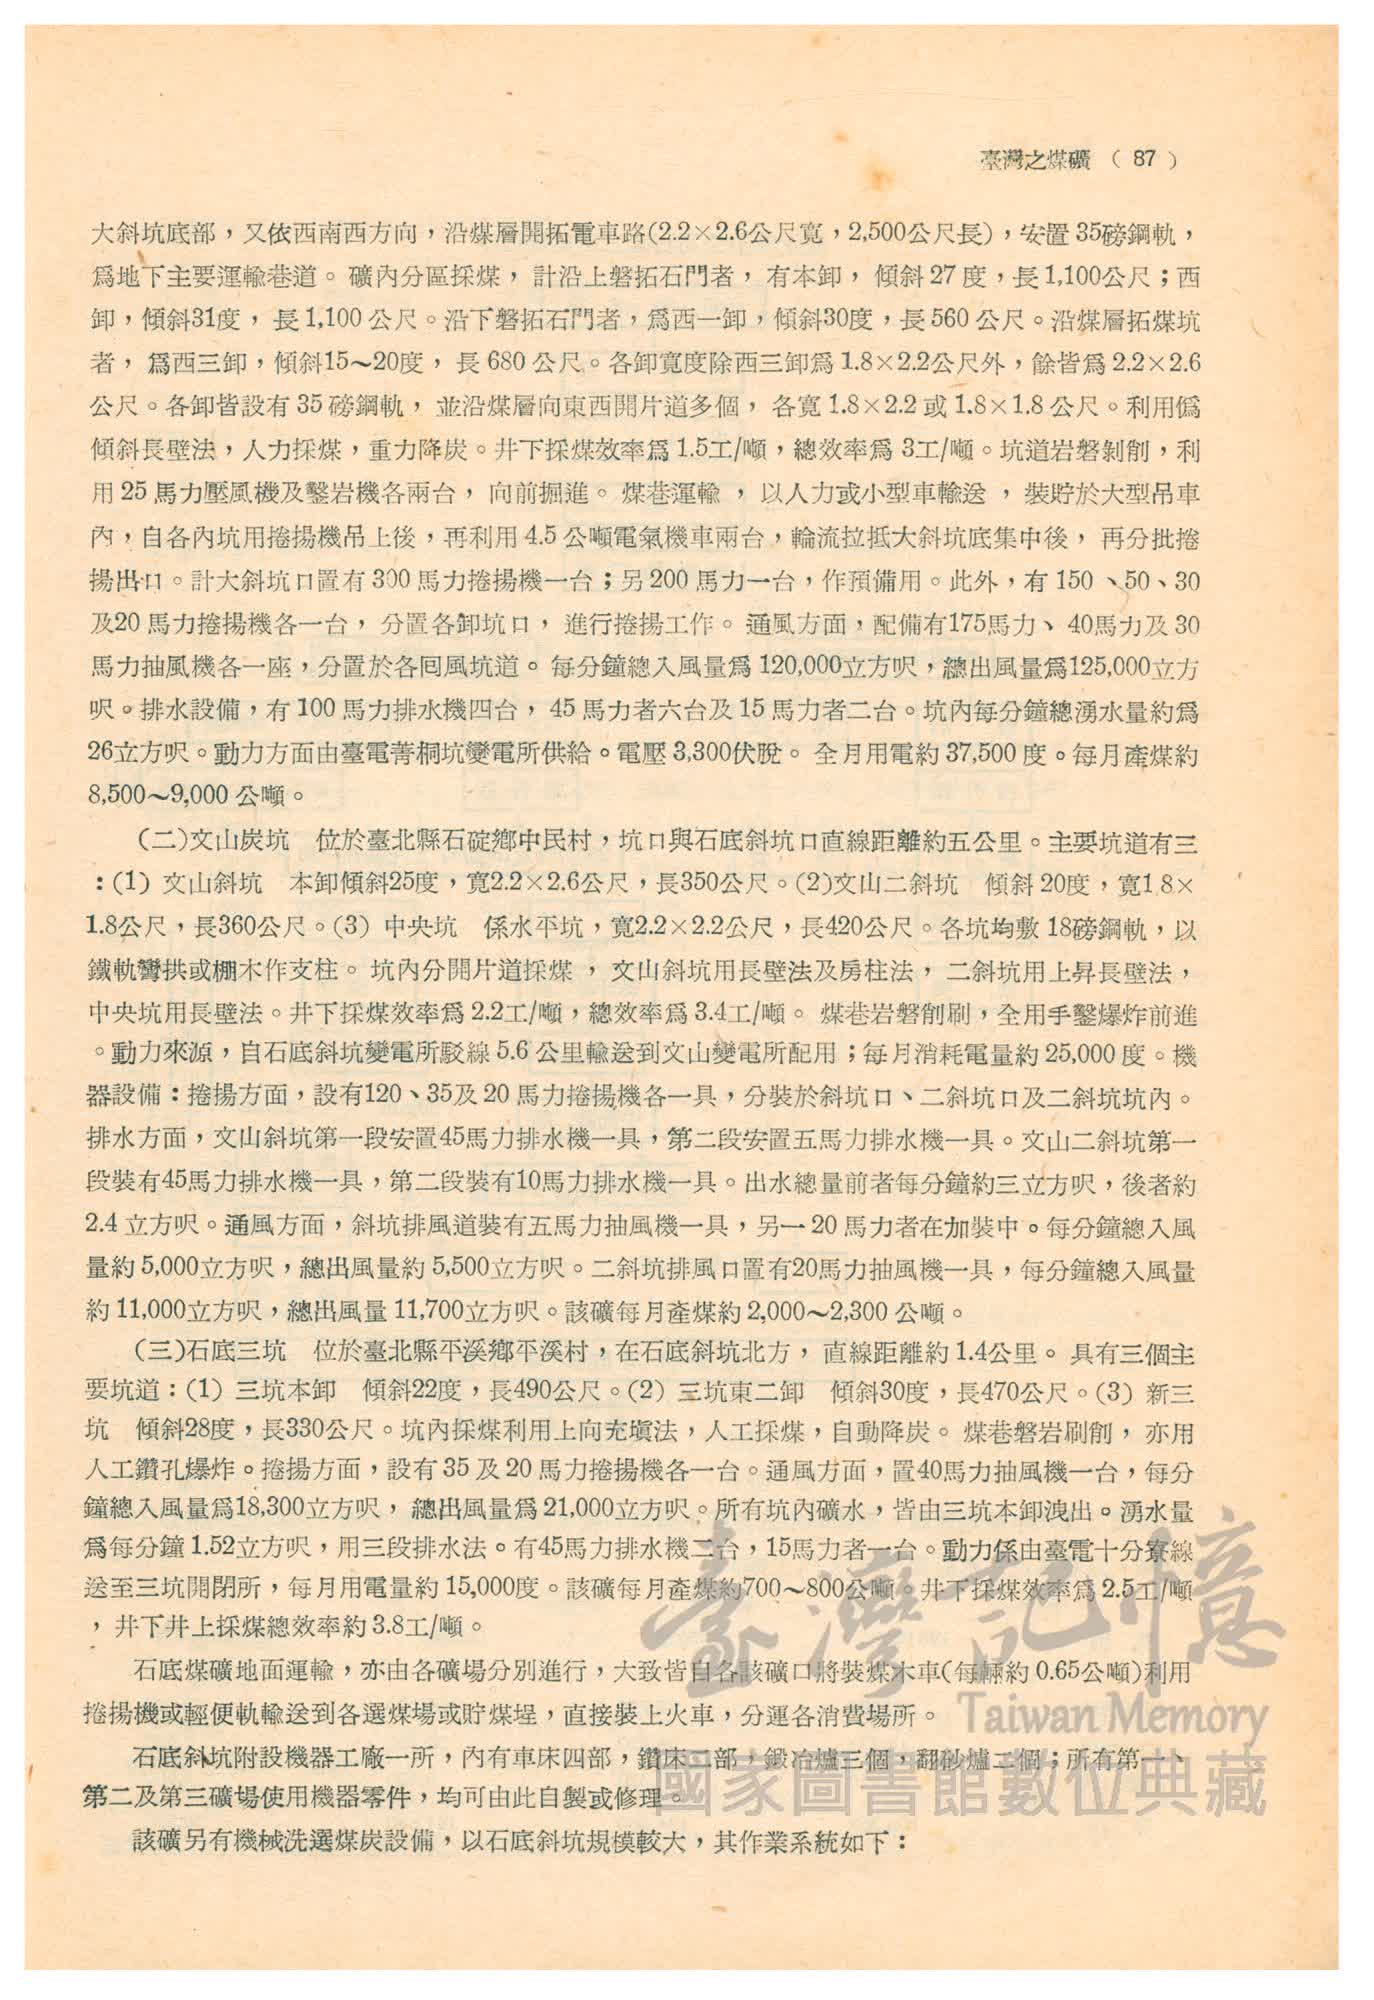 臺灣之煤礦 （ 87 ）
大斜坑底部，又依西南西方向，沿煤層開拓電車路(2.2×2.6公尺寬，2,500公尺長)，安置 35磅鋼軌，
爲地下主要運輸巷道。 礦內分區採煤， 計沿上磐拓石門者， 有本卸， 傾斜 27 度，長 1,100公尺；西
卸，傾斜31度， 長 1,100 公尺。沿下磐拓石門者，爲西一卸，傾斜30度，長 560 公尺。沿煤層拓煤坑
者， 爲西三卸，傾斜15～20度， 長 680 公尺。各卸寬度除西三卸爲 1.8×2.2公尺外，餘皆爲 2.2×2.6
公尺。各卸皆設有 35 磅鋼軌， 並沿煤層向東西開片道多個， 各寬 1.8×2.2 或 1.8×1.8 公尺。利用僞
傾斜長壁法，人力採煤，重力降炭。井下採煤效率爲 1.5工/噸，總效率爲 3工/噸。坑道岩磐剝削，利
用 25 馬力壓風機及鑿岩機各兩台， 向前掘進。 煤巷運輸 ， 以人力或小型車輸送 ， 裝貯於大型吊車
內，自各內坑用捲揚機吊上後，再利用 4.5 公噸電氣機車兩台，輪流拉抵大斜坑底集中後， 再分批捲
揚出口。計大斜坑口置有 300 馬力捲揚機一台；另 200 馬力一台，作預備用。此外，有 150 、50、30
及20 馬力捲揚機各一台， 分置各卸坑口， 進行捲揚工作。 通風方面，配備有175馬力、 40馬力及 30
馬力抽風機各一座，分置於各囘風坑道。 每分鐘總入風量爲 120,000立方呎，總出風量爲125,000立方
呎。排水設備，有 100 馬力排水機四台， 45 馬力者六台及 15 馬力者二台。坑內每分鐘總湧水量約爲
26立方呎。動力方面由臺電菁桐坑變電所供給。電壓 3,300伏脫。 全月用電約 37,500 度。每月產煤約
8,500～9,000 公噸。
(二)文山炭坑　位於臺北縣石碇鄉中民村，坑口與石底斜坑口直線距離約五公里。主要坑道有三
：(1) 文山斜坑　本卸傾斜25度，寬2.2×2.6公尺，長350公尺。(2)文山二斜坑　傾斜 20度，寬1.8×
1.8公尺，長360公尺。(3) 中央坑　係水平坑，寬2.2×2.2公尺，長420公尺。各坑均敷 18磅鋼軌，以
鐵軌彎拱或棚木作支柱。 坑內分開片道採煤 ， 文山斜坑用長壁法及房柱法， 二斜坑用上昇長壁法，
中央坑用長壁法。井下採煤效率爲 2.2工/噸，總效率爲 3.4工/噸。 煤巷岩磐削刷，全用手鑿爆炸前進
。動力來源，自石底斜坑變電所駁線 5.6 公里輸送到文山變電所配用；每月消耗電量約 25,000 度。機
器設備：捲揚方面，設有120、35及 20 馬力捲揚機各一具，分裝於斜坑口、二斜坑口及二斜坑坑內。
排水方面，文山斜坑第一段安置45馬力排水機一具，第二段安置五馬力排水機一具。文山二斜坑第一
段裝有45馬力排水機一具，第二段裝有10馬力排水機一具。出水總量前者每分鐘約三立方呎，後者約
2.4 立方呎。通風方面，斜坑排風道裝有五馬力抽風機一具，另一 20 馬力者在加裝中。每分鐘總入風
量約 5,000立方呎，總出風量約 5,500立方呎。二斜坑排風口置有20馬力抽風機一具，每分鐘總入風量
約 11,000立方呎，總出風量 11,700立方呎。該礦每月產煤約 2,000～2,300 公噸。
(三)石底三坑　位於臺北縣平溪鄉平溪村，在石底斜坑北方， 直線距離約 1.4公里。 具有三個主
要坑道：(1) 三坑本卸　傾斜22度，長490公尺。(2) 三坑東二卸　傾斜30度，長470公尺。(3) 新三
坑　傾斜28度，長330公尺。坑內採煤利用上向充塡法，人工採煤，自動降炭。 煤巷磐岩刷削， 亦用
人工鑽孔爆炸。捲揚方面，設有 35 及 20 馬力捲揚機各一台。通風方面，置40馬力抽風機一台，每分
鐘總入風量爲18,300立方呎， 總出風量爲 21,000立方呎。所有坑內礦水，皆由三坑本卸洩出。湧水量
爲每分鐘 1.52立方呎，用三段排水法。有45馬力排水機二台，15馬力者一台。動力係由臺電十分寮線
送至三坑開閉所，每月用電量約 15,000度。該礦每月產煤約700～800公噸。井下採煤效率爲 2.5工/噸
，井下井上採煤總效率約 3.8工/噸。
石底煤礦地面運輸，亦由各礦場分別進行，大致皆自各該礦口將裝煤木車(每輛約 0.65公噸)利用
捲揚機或輕便軌輸送到各選煤場或貯煤埕，直接裝上火車，分運各消費場所。
石底斜坑附設機器工廠一所，內有車床四部，鑽床二部，鍛冶爐三個，翻砂爐二個；所有第一、
第二及第三礦場使用機器零件，均可由此自製或修理。
該礦另有機械洗選煤炭設備，以石底斜坑規模較大，其作業系統如下：
臺灣記憶
Taiwan Memory
國家圖書館數位典藏